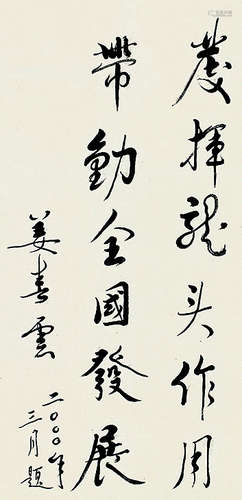 發揮龍头作用
帶動全國發展
姜春雲
二〇〇〇年
三月題